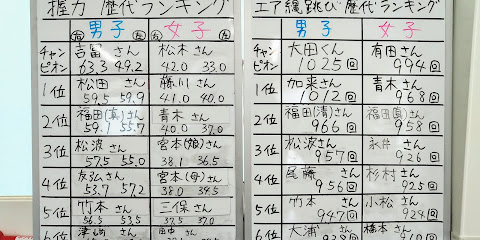 握力 歴代ランキング
男子 女子
右 左 右 左
チャンピオン 吉冨 さん 松木 さん
63.3 49.2 42.0 33.0
1位 松田 さん 藤川 さん
59.5 59.9 41.0 40.0
2位 福田(真)さん 青木 さん
59.1 55.7 40.0 37.0
3位 松波 さん 宮本(娘)さん
57.5 55.0 38.1 36.5
4位 さん 宮本(母)さん
53.7 57.2 38.0 34.5
5位 竹本 さん 三保 さん
56.5 53.5 37.5 37.0
6位 さん 田中 さん
エア縄跳び 歴代ランキング
男子 女子
チャンピオン 大田くん 有田 さん
1025回 994回
1位 加来さん 青木 さん
1012回 968回
2位 福田(清)さん 福田(真)さん
966回 958回
3位 松波 さん 永井 さん
957回 926回
4位 尾藤 さん 杉村 さん
956回 925回
5位 竹本 さん 小松 さん
947回 924回
6位 大浦 さん 橋本 さん